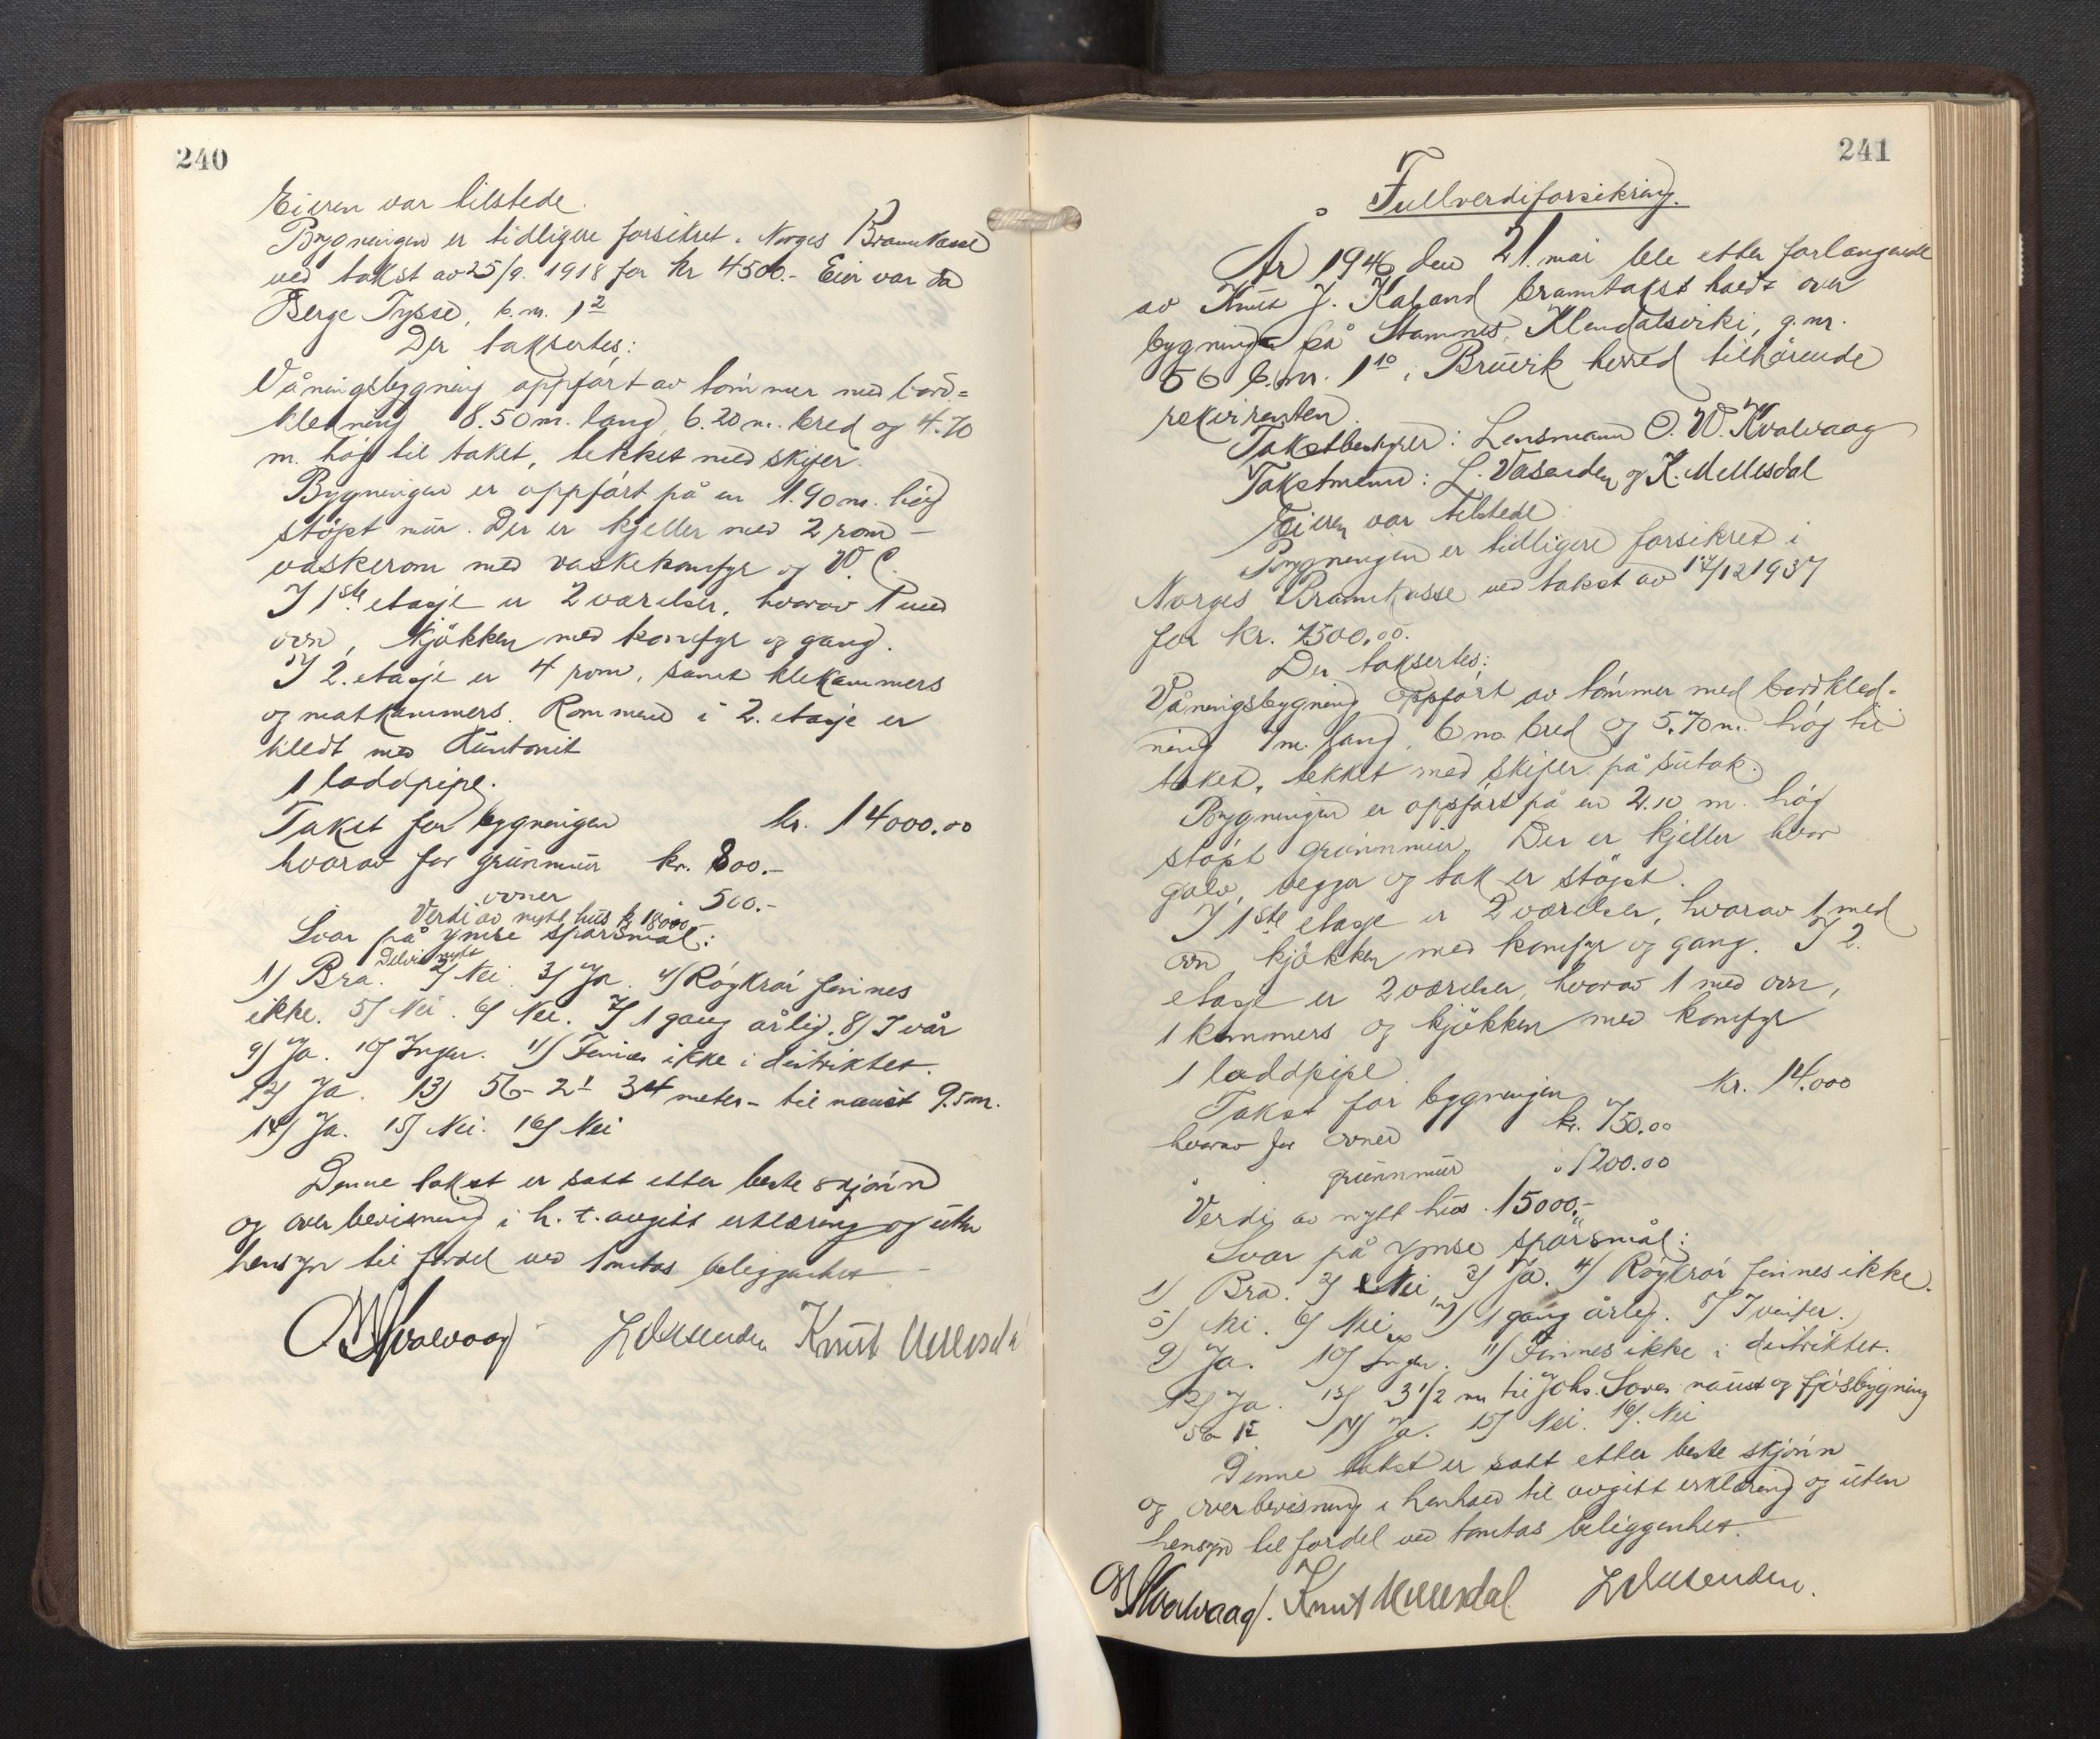 240
Eieren var tilstede.
Bygningen er tidligere forsikret i Norges Brannkasse
ved takst av 25/9. 1918 for kr 4500.- Eier var da
Berge Tysse, b.nr. 1²
Der taksertes:
Våningsbygning oppført av tømmer med bord=
kledning 8.50 m. lang, 6.20 m. bred og 4.70
m. høg til taket, tekket med skifer.
Bygningen er oppført på en 1.90 m. høg
støpt mur. Der er kjeller med 2 rom –
vaskerom med vaskekomfyr og W.C.
I 1ste etasje er 2 værelser, hvorav 1 med
ovn, kjøkken med komfyr og gang.
I 2. etasje er 4 rom, samt klekammers
og matkammers. Rommene i 2. etasje er
kledt med Huntonit
1 loddpipe.
Takst for bygningen kr. 14000.00
hvorav for grunnmur kr. 800.-
ovner 500.-
Verdi av nytt hus kr 18000
Svar på ymse spørsmål:
Delvis nytt
1) Bra. 2) Nei. 3) Ja. 4) Røykrør finnes
ikke. 5) Nei. 6) Nei. 7) 1 gang årlig. 8) I vår
9) Ja. 10) Ingen. 11) Finnes ikke i distriktet.
12) Ja. 13) 56- 2¹ 34 meter- til naust 9.5m.
14) Ja. 15) Nei. 16) Nei
Denne takst er satt etter beste skjønn
og overbevisning i h. t. avgitt erklæring og uten
hensyn til fordel ved tomtas beliggenhet –
OWKvalvaag L Vasenden Knut Mellesdal
241
Fullverdiforsikring.
År 1946 den 21. mai ble etter forlangende
av Knut J. Kaland branntakst holdt over
bygning på Stamnes, Eksingedalsvirki, g.nr.
56 b.nr. 1¹⁰ i Bruvik herred tilhørende
rekvirenten.
Takstbestyrer: Lensmann O. W. Kvalvaag
Takstmenn: L. Vasenden og K. Mellesdal
Eieren var tilstede.
Bygningen er tidligere forsikret i
Norges Brannkasse ved takst av 17/12 1937
for kr. 7500.00.
Der taksertes:
Våningsbygning oppført av tømmer med bordkled-
ning 7 m. lang, 6 m. bred og 5.70 m. høg til
taket, tekket med skifer på sutak.
Bygningen er oppført på en 2.10 m. høg
støpt grunnmur. Der er kjeller hvor
golv, vegger og tak er støpt.
I 1ste etasje er 2 værelser, hvorav 1 med
ovn, kjøkken med komfyr og gang. I 2.
etasje er 2 værelser, hvorav 1 med ovn,
1 kammers og kjøkken med komfyr
1 loddpipe.
Takst for bygningen kr. 14.000
hvorav for ovner kr. 750.00
" " grunnmur " 1200.00
Verdi av nytt hus 15000.-
Svar på ymse spørsmål:
1) Bra. 2) Nei 3) Ja. 4) Røykrør finnes ikke.
5) Nei. 6) Nei 7) 1 gang årleg. 8) I vinter.
9) Ja. 10) Ingen. 11) Finnes ikke i distriktet.
12) Ja. 13) 3 1/2 m til Johs. naust og fjøsbygning
56 14) Ja. 15) Nei. 16) Nei
Denne takst er satt etter beste skjønn
og overbevisning i henhold til avgitt erklæring og uten
hensyn til fordel ved tomtas beliggenhet.
OWKvalvaag. Knut Mellesdal L Vasenden.